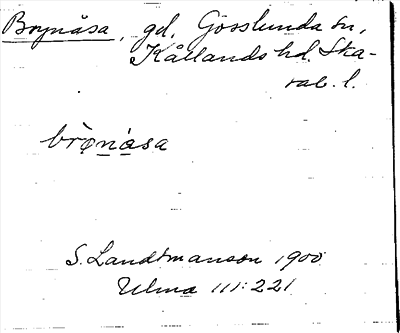 Brynåsa, gd, Gösslunda sn,
Kållands hd. Ska-
rab. l.
brø̀nåsa
S. Landtmanson 1900
Ulma 111:221